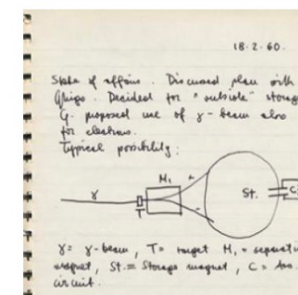 18.2.60.
State of affairs. Discussed plan with
Ghigo. Decided for "outside" storage
G. proposed use of γ-beam also
for electrons.
Typical possibility:
M₁
+
γ
T
St.
C
γ = γ-beam, T = target M₁ = separatin
magnet, St. = Storage magnet, C =
circuit.